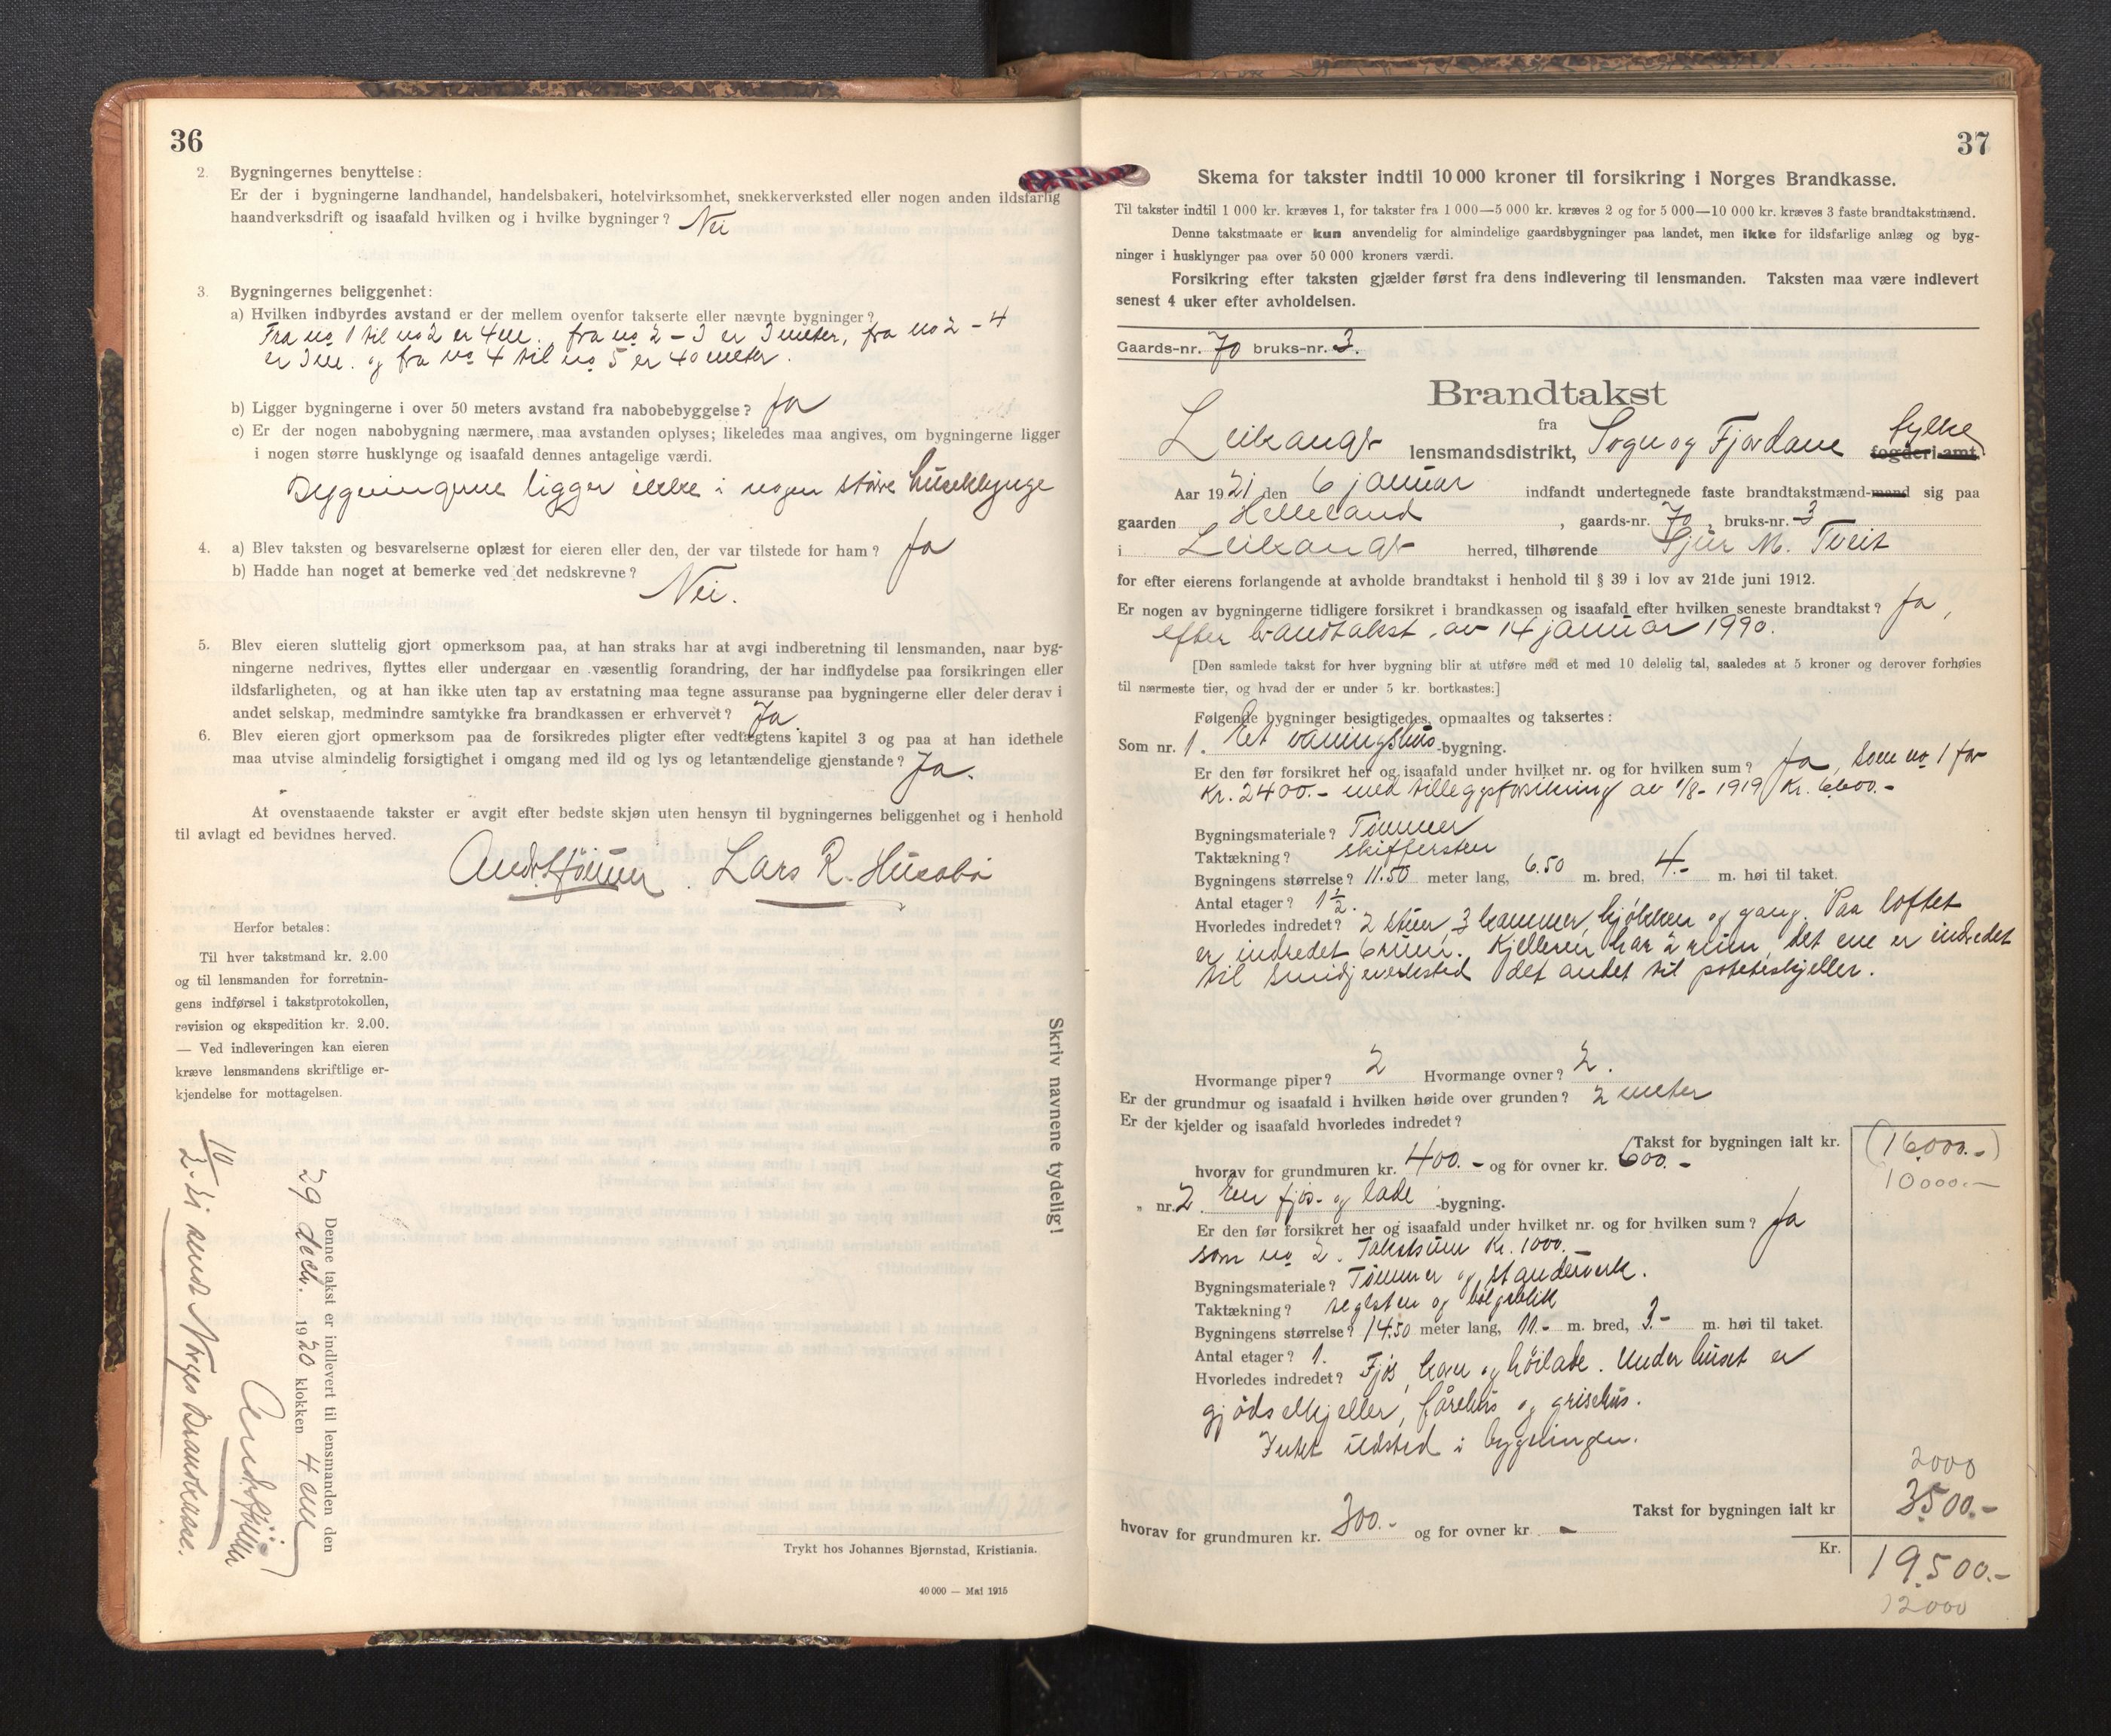 36
2. Bygningernes benyttelse:
Er der i bygningerne landhandel, handelsbakeri, hotelvirksomhet, snekkerverksted eller nogen anden ildsfarlig
haandverksdrift og isaafald hvilken og i hvilke bygninger? Nei
3. Bygningernes beliggenhet:
a) Hvilken indbyrdes avstand er der mellem ovenfor takserte eller nævnte bygninger?
Fra no 1 til no 2 er 4 m., fra no 2 - 3 er 3 meter, fra no 2 - 4
er 3 m. og fra no 4 til no 5 er 40 meter.
b) Ligger bygningerne i over 50 meters avstand fra nabobebyggelse? Ja
c) Er der nogen nabobygning nærmere, maa avstanden oplyses; likeledes maa angives, om bygningerne ligger
i nogen større husklynge og isaafald dennes antagelige værdi.
Bygningerne ligger ikke i nogen större husklynge
4. a) Blev taksten og besvarelserne oplæst for eieren eller den, der var tilstede for ham? Ja
b) Hadde han noget at bemerke ved det nedskrevne?
Nei.
5. Blev eieren sluttelig gjort opmerksom paa, at han straks har at avgi indberetning til lensmanden, naar byg-
ningerne nedrives, flyttes eller undergaar en væsentlig forandring, der har indflydelse paa forsikringen eller
ildsfarligheten, og at han ikke uten tap av erstatning maa tegne assuranse paa bygningerne eller deler derav i
andet selskap, medmindre samtykke fra brandkassen er erhvervet? Ja
6. Blev eieren gjort opmerksom paa de forsikredes pligter efter vedtægtens kapitel 3 og paa at han idethele
maa utvise almindelig forsigtighet i omgang med ild og lys og letantændelige gjenstande? Ja.
At ovenstaaende takster er avgit efter bedste skjøn uten hensyn til bygningernes beliggenhet og i henhold
til avlagt ed bevidnes herved.
Lars R. Husabö
Herfor betales:
Til hver takstmand kr. 2.00
og til lensmanden for forretnin-
gens indførsel i takstprotokollen,
revision og ekspedition kr. 2.00.
— Ved indleveringen kan eieren
kræve lensmandens skriftlige er-
kjendelse for mottagelsen.
Skriv navnene tydelig!
Denne takst er indlevert til lensmanden den
29 decb. 1920 klokken 4 em
10/2-21 sendt Norges Brandkasse.
Trykt hos Johannes Bjørnstad, Kristiania.
40 000 — Mai 1915
37
Skema for takster indtil 10 000 kroner til forsikring i Norges Brandkasse.
Til takster indtil 1 000 kr. kræves 1, for takster fra 1 000—5 000 kr. kræves 2 og for 5 000—10 000 kr. kræves 3 faste brandtakstmænd.
Denne takstmaate er kun anvendelig for almindelige gaardsbygninger paa landet, men ikke for ildsfarlige anlæg og byg-
ninger i husklynger paa over 50 000 kroners værdi.
Forsikring efter taksten gjælder først fra dens indlevering til lensmanden. Taksten maa være indlevert
senest 4 uker efter avholdelsen.
Gaards-nr. 70 bruks-nr. 3.
Brandtakst
fra
Leikanger lensmandsdistrikt, Sogn og Fjordane fylke fogderi amt
Aar 1921 den 6 januar indfandt undertegnede faste brandtakstmænd-mand sig paa
gaarden Helleland, gaards-nr. 70, bruks-nr. 3
i Leikanger herred, tilhørende Sjur M. Tveit
for efter eierens forlangende at avholde brandtakst i henhold til § 39 i lov av 21de juni 1912.
Er nogen av bygningerne tidligere forsikret i brandkassen og isaafald efter hvilken seneste brandtakst? Ja,
efter brandtakst av 14 januar 1990.
[Den samlede takst for hver bygning blir at utføre med et med 10 delelig tal, saaledes at 5 kroner og derover forhøies
til nærmeste tier, og hvad der er under 5 kr. bortkastes.]
Følgende bygninger besigtigedes, opmaaltes og taksertes:
Som nr. 1. Et vaaningshus-bygning.
Er den før forsikret her og isaafald under hvilket nr. og for hvilken sum? Ja, som no 1 for
Kr. 2400.- med tilleggsforsikring av 1/8 - 1919 Kr. 6600.-
Bygningsmateriale? Tömmer
Taktækning? Skiffersten
Bygningens størrelse? 11.50 meter lang, 6.50 m. bred, 4.- m. høi til taket.
Antal etager? 1 1/2.
Hvorledes indredet? 2 stuer, 3 kammer, kjökken og gang. Paa loftet
er indredet 6 rum. Kjelleren har 2 rum, det ene er indredet
til smidjeverksted det andet til potetkjeller.
Hvormange piper? 2 Hvormange ovner? 2.
Er der grundmur og isaafald i hvilken høide over grunden? 2 meter
Er der kjelder og isaafald hvorledes indredet?
Takst for bygningen ialt kr. (16000.-)
hvorav for grundmuren kr. 400.- og for ovner kr. 600.-
10000.-
" nr. 2. En fjös- og lade-bygning.
Er den før forsikret her og isaafald under hvilket nr. og for hvilken sum? Ja
som no 2. Takstsum Kr. 1000.-
Bygningsmateriale? Tömmer og standerverk.
Taktækning? teglsten og bölgeblik
Bygningens størrelse? 14.50 meter lang, 11.- m. bred, 3.- m. høi til taket.
Antal etager? 1.
Hvorledes indredet? Fjös, lave og höilade. Under huset er
gjödselkjeller, fårehus og grisehus.
Intet ildsted i bygningen.
2000
Takst for bygningen ialt kr 3500.-
hvorav for grundmuren kr. 300.- og for ovner kr -
Kr. 19.500.-
12000